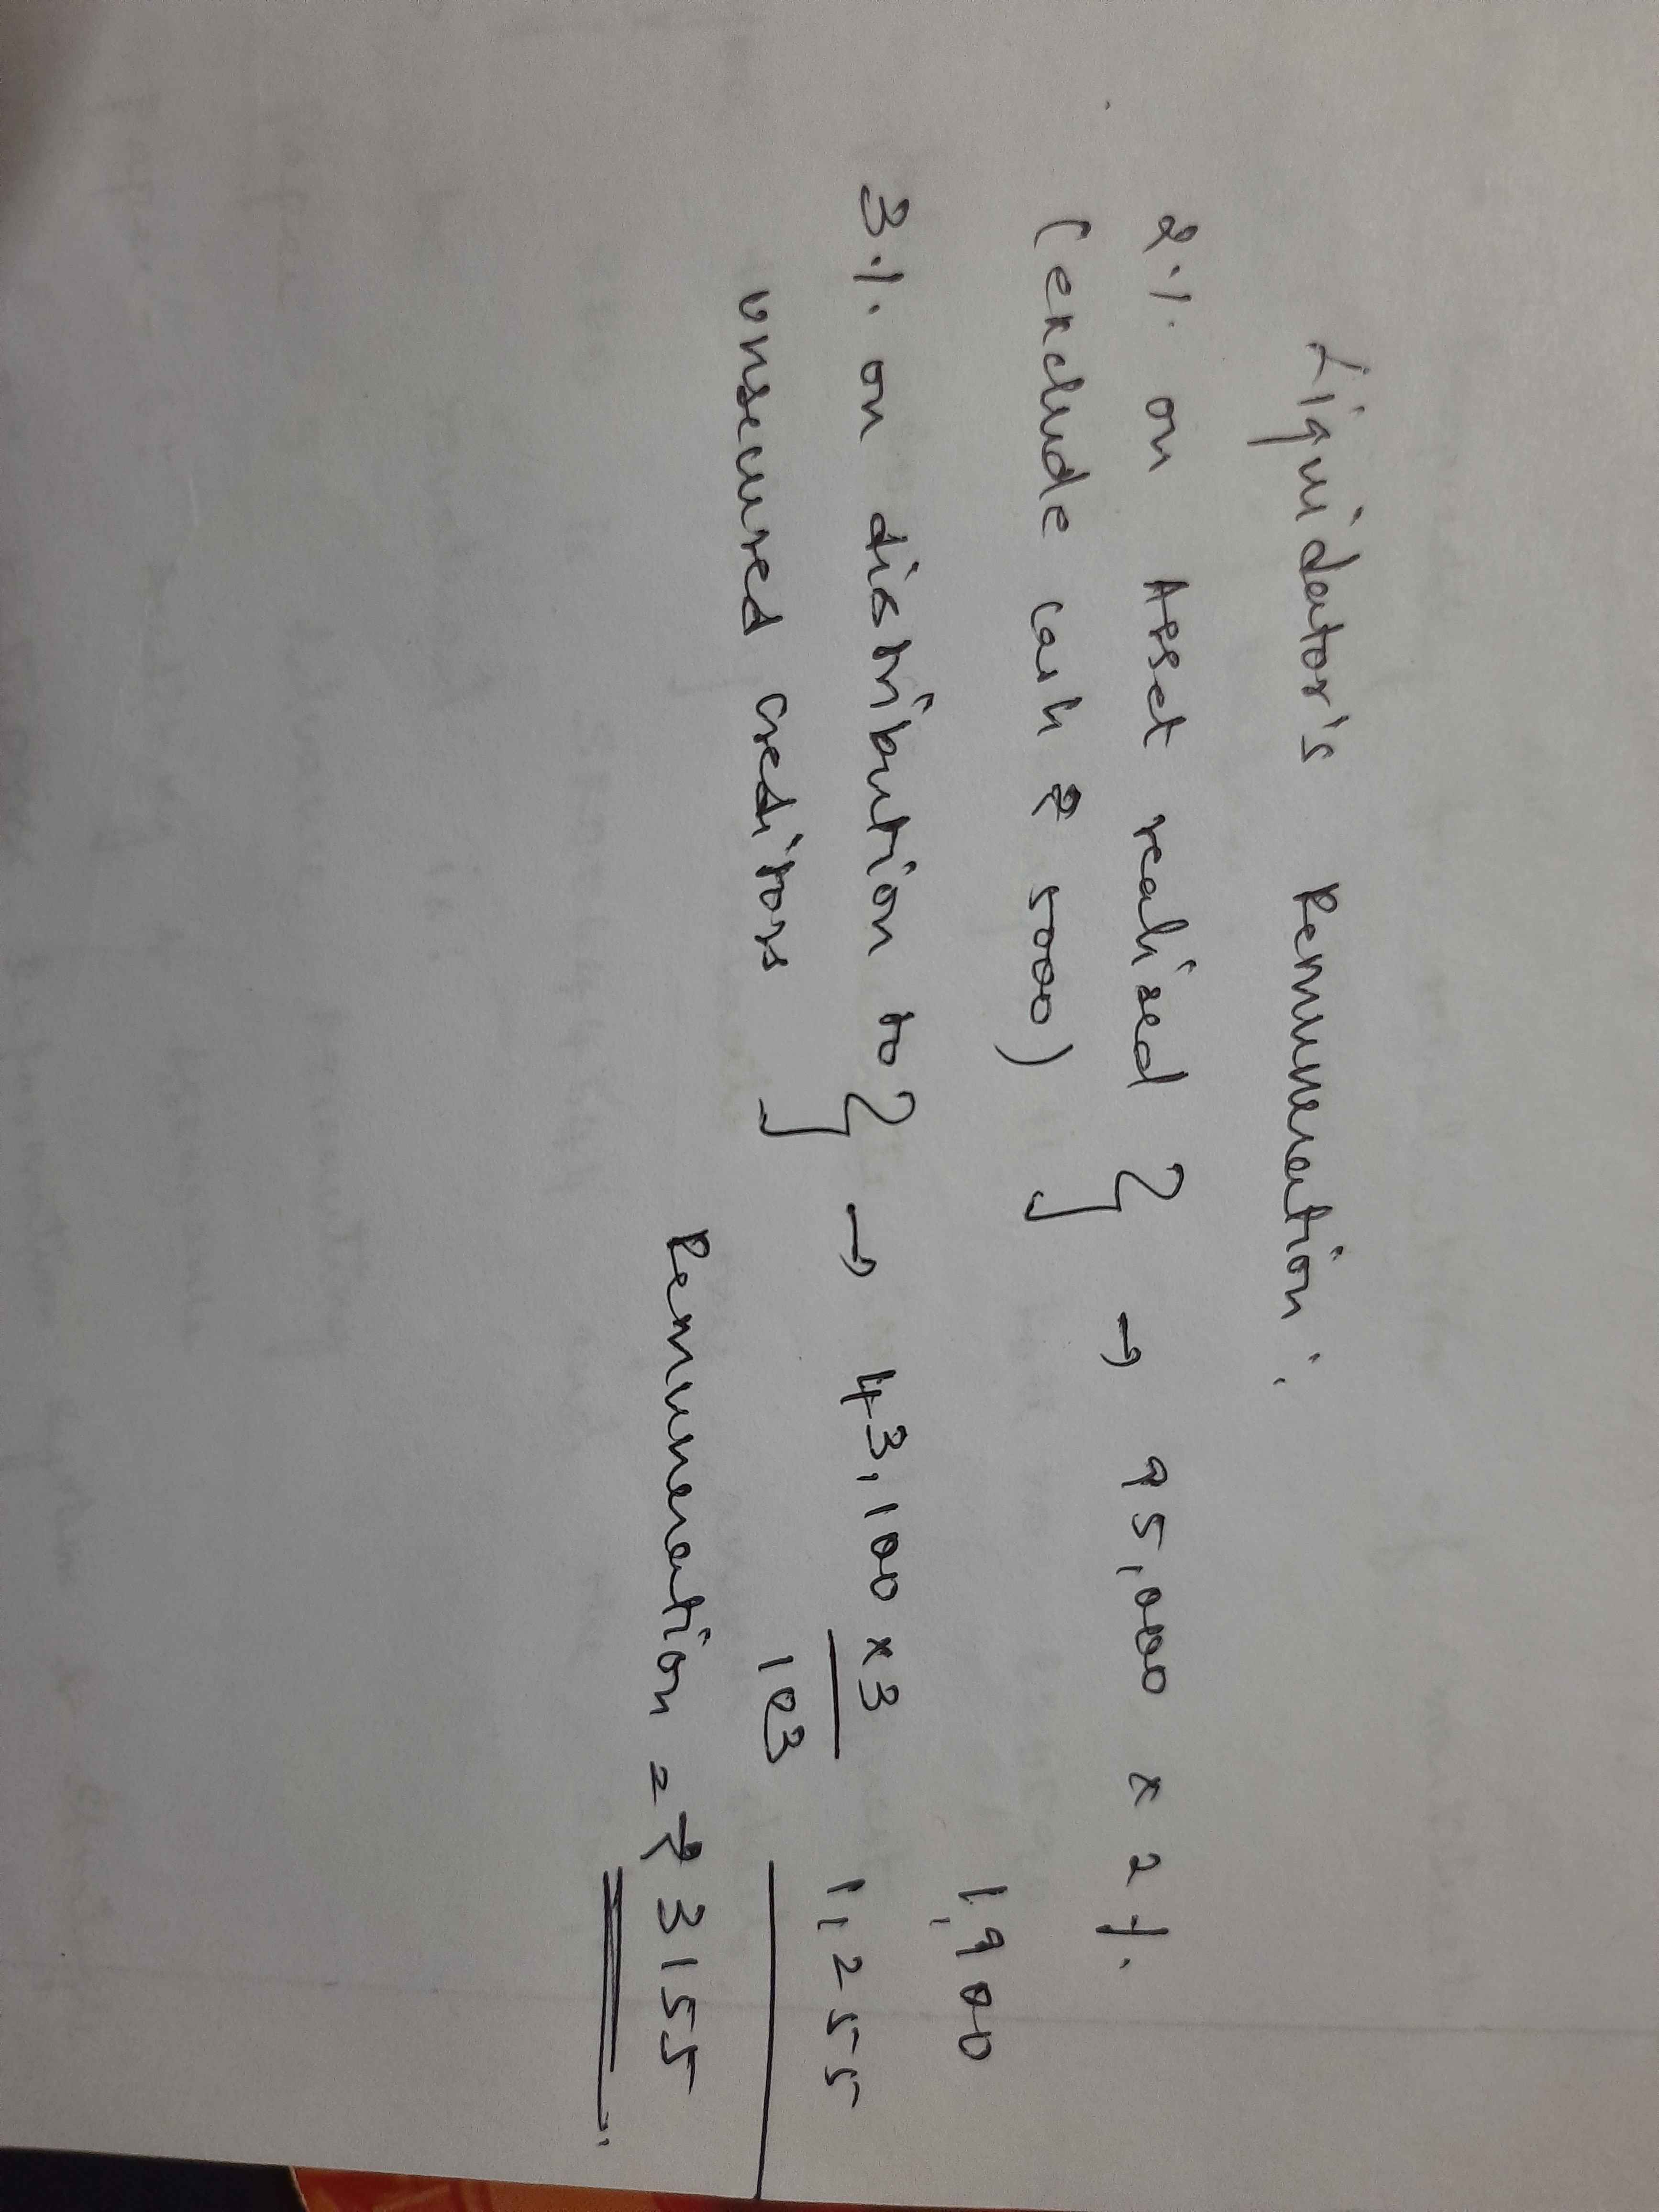 Liquidator's Remuneration:
2% on Asset realised } → 95,000 x 2%
(exclude cash ₹ 5000) 1,900
3% on distribution to } → 43,100 x 3
unsecured creditors 103 1,255
Remuneration = ₹ 3155